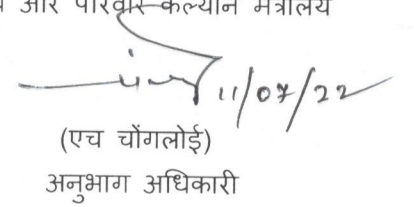 और परिवार कल्याण मंत्रालय
11/07/22
(एच चोंगलोई)
अनुभाग अधिकारी